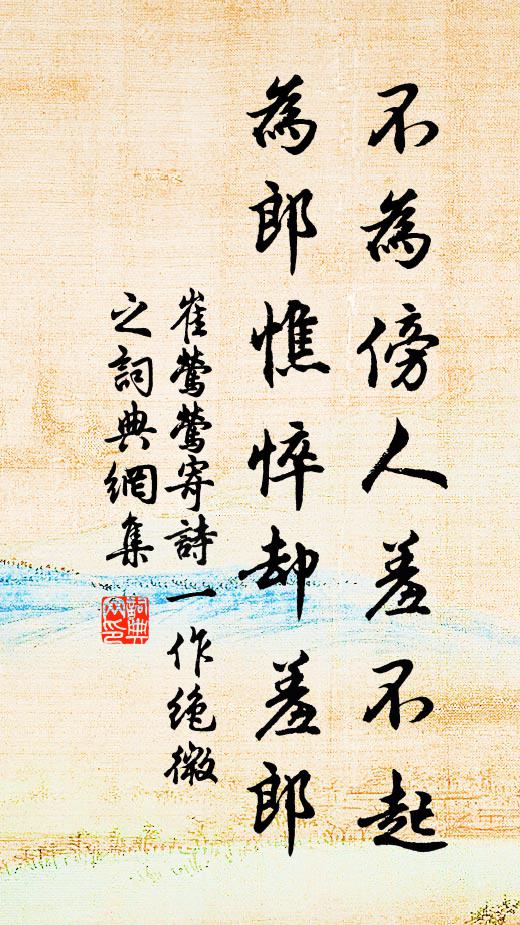 不為傍人羞不起
為郎憔悴却羞郎
崔鶯鶯寄詩一作絶微
之詞典網集
詞典